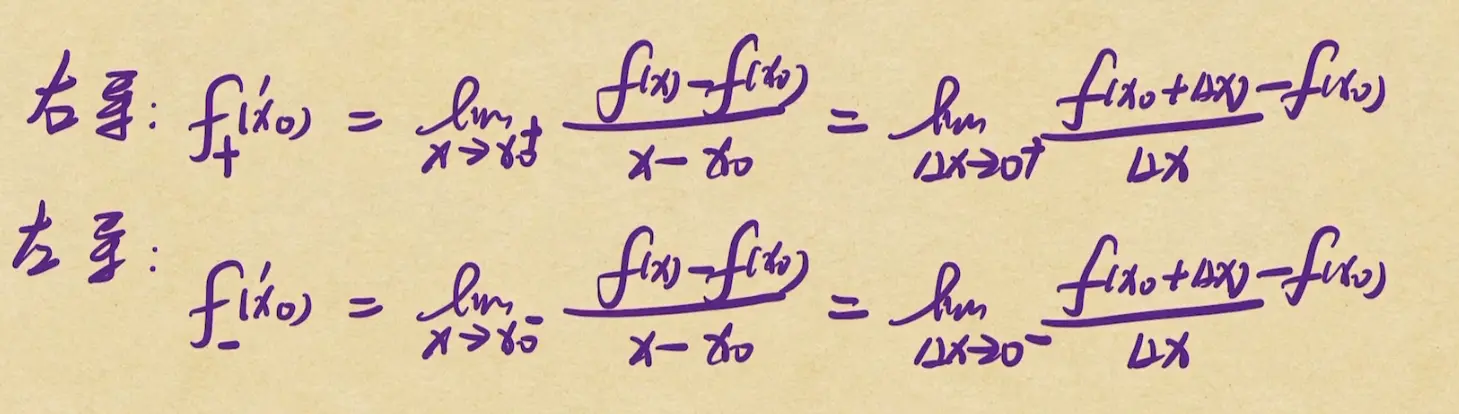 右导: f₊'(x₀) = lim_{x→x₀⁺} \frac{f(x)-f(x₀)}{x-x₀} = lim_{Δx→0⁺} \frac{f(x₀+Δx)-f(x₀)}{Δx}
左导: f₋'(x₀) = lim_{x→x₀⁻} \frac{f(x)-f(x₀)}{x-x₀} = lim_{Δx→0⁻} \frac{f(x₀+Δx)-f(x₀)}{Δx}